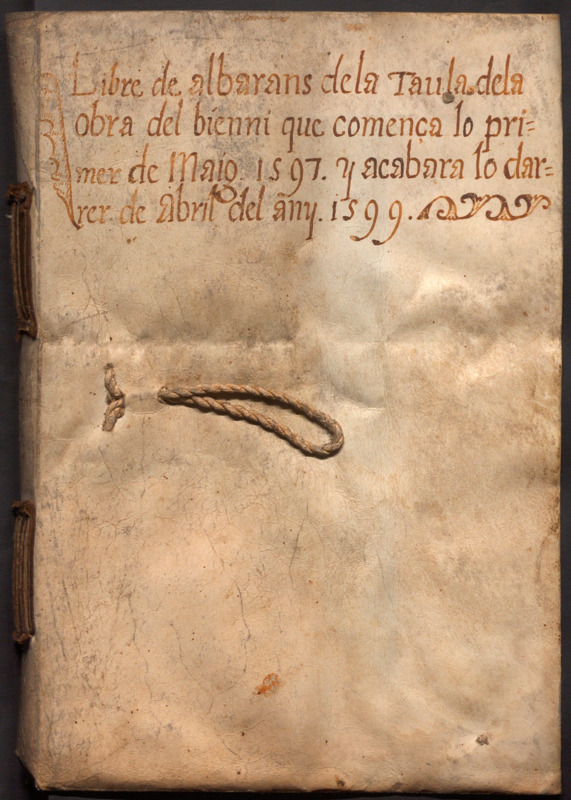 Libre de albarans dela Taula dela
obra del bienni que comença lo pri=
mer de Maio. 1597. y acabara lo dar=
rer de Abril del añy. 1599.